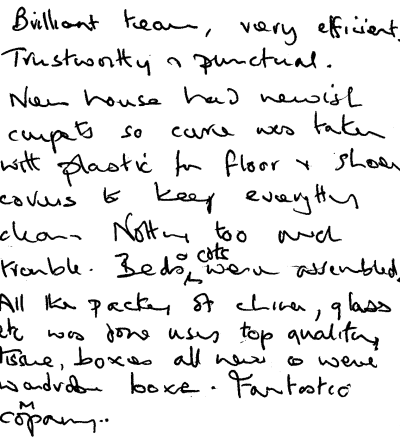 Brilliant team, very efficient,
Trustworthy & punctual.
New house had newish
carpets so care was taken
with plastic for floor & shoe
covers to keep everything
clean. Nothing too much
trouble. Beds & cots were assembled,
All the packing of china, glass
etc was done using top quality
tissue, boxes all new as were
wardrobe boxes. Fantastic
company..